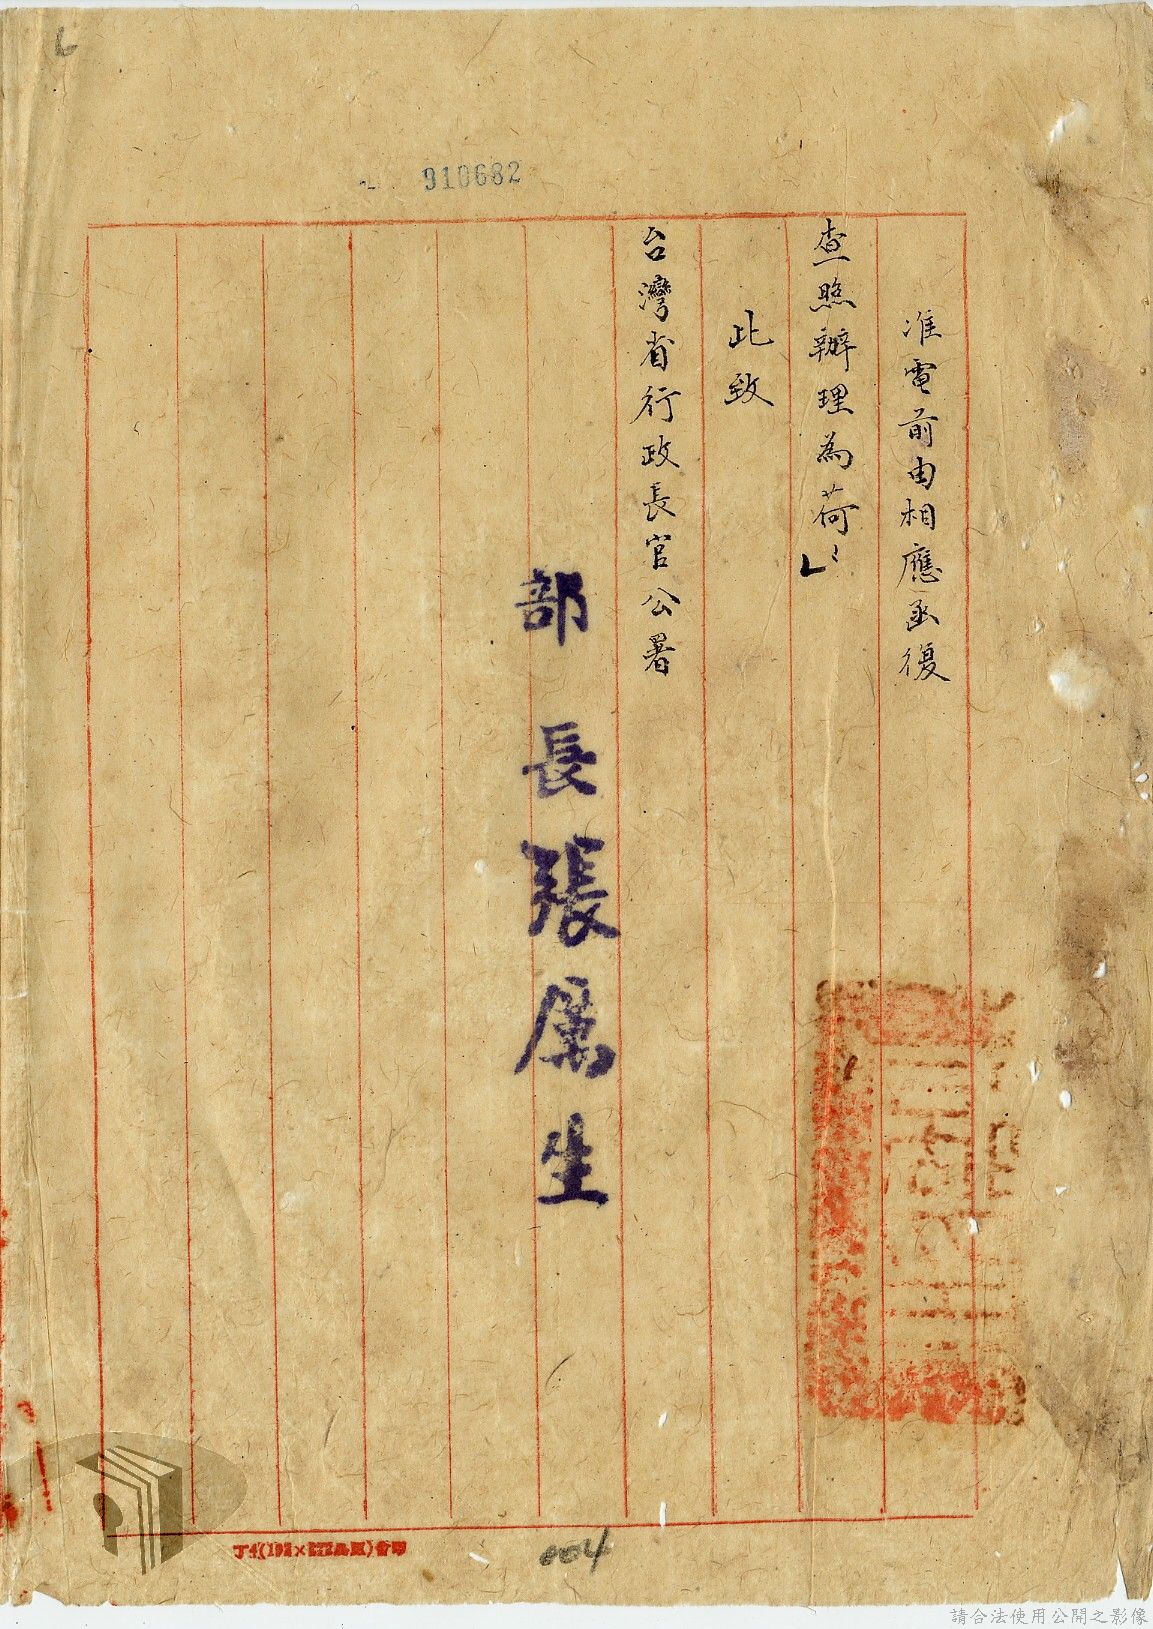 910682
准電前由相應函復
查照辦理為荷
此致
台灣省行政長官公署
部長張厲生
004
請合法使用公開之影像